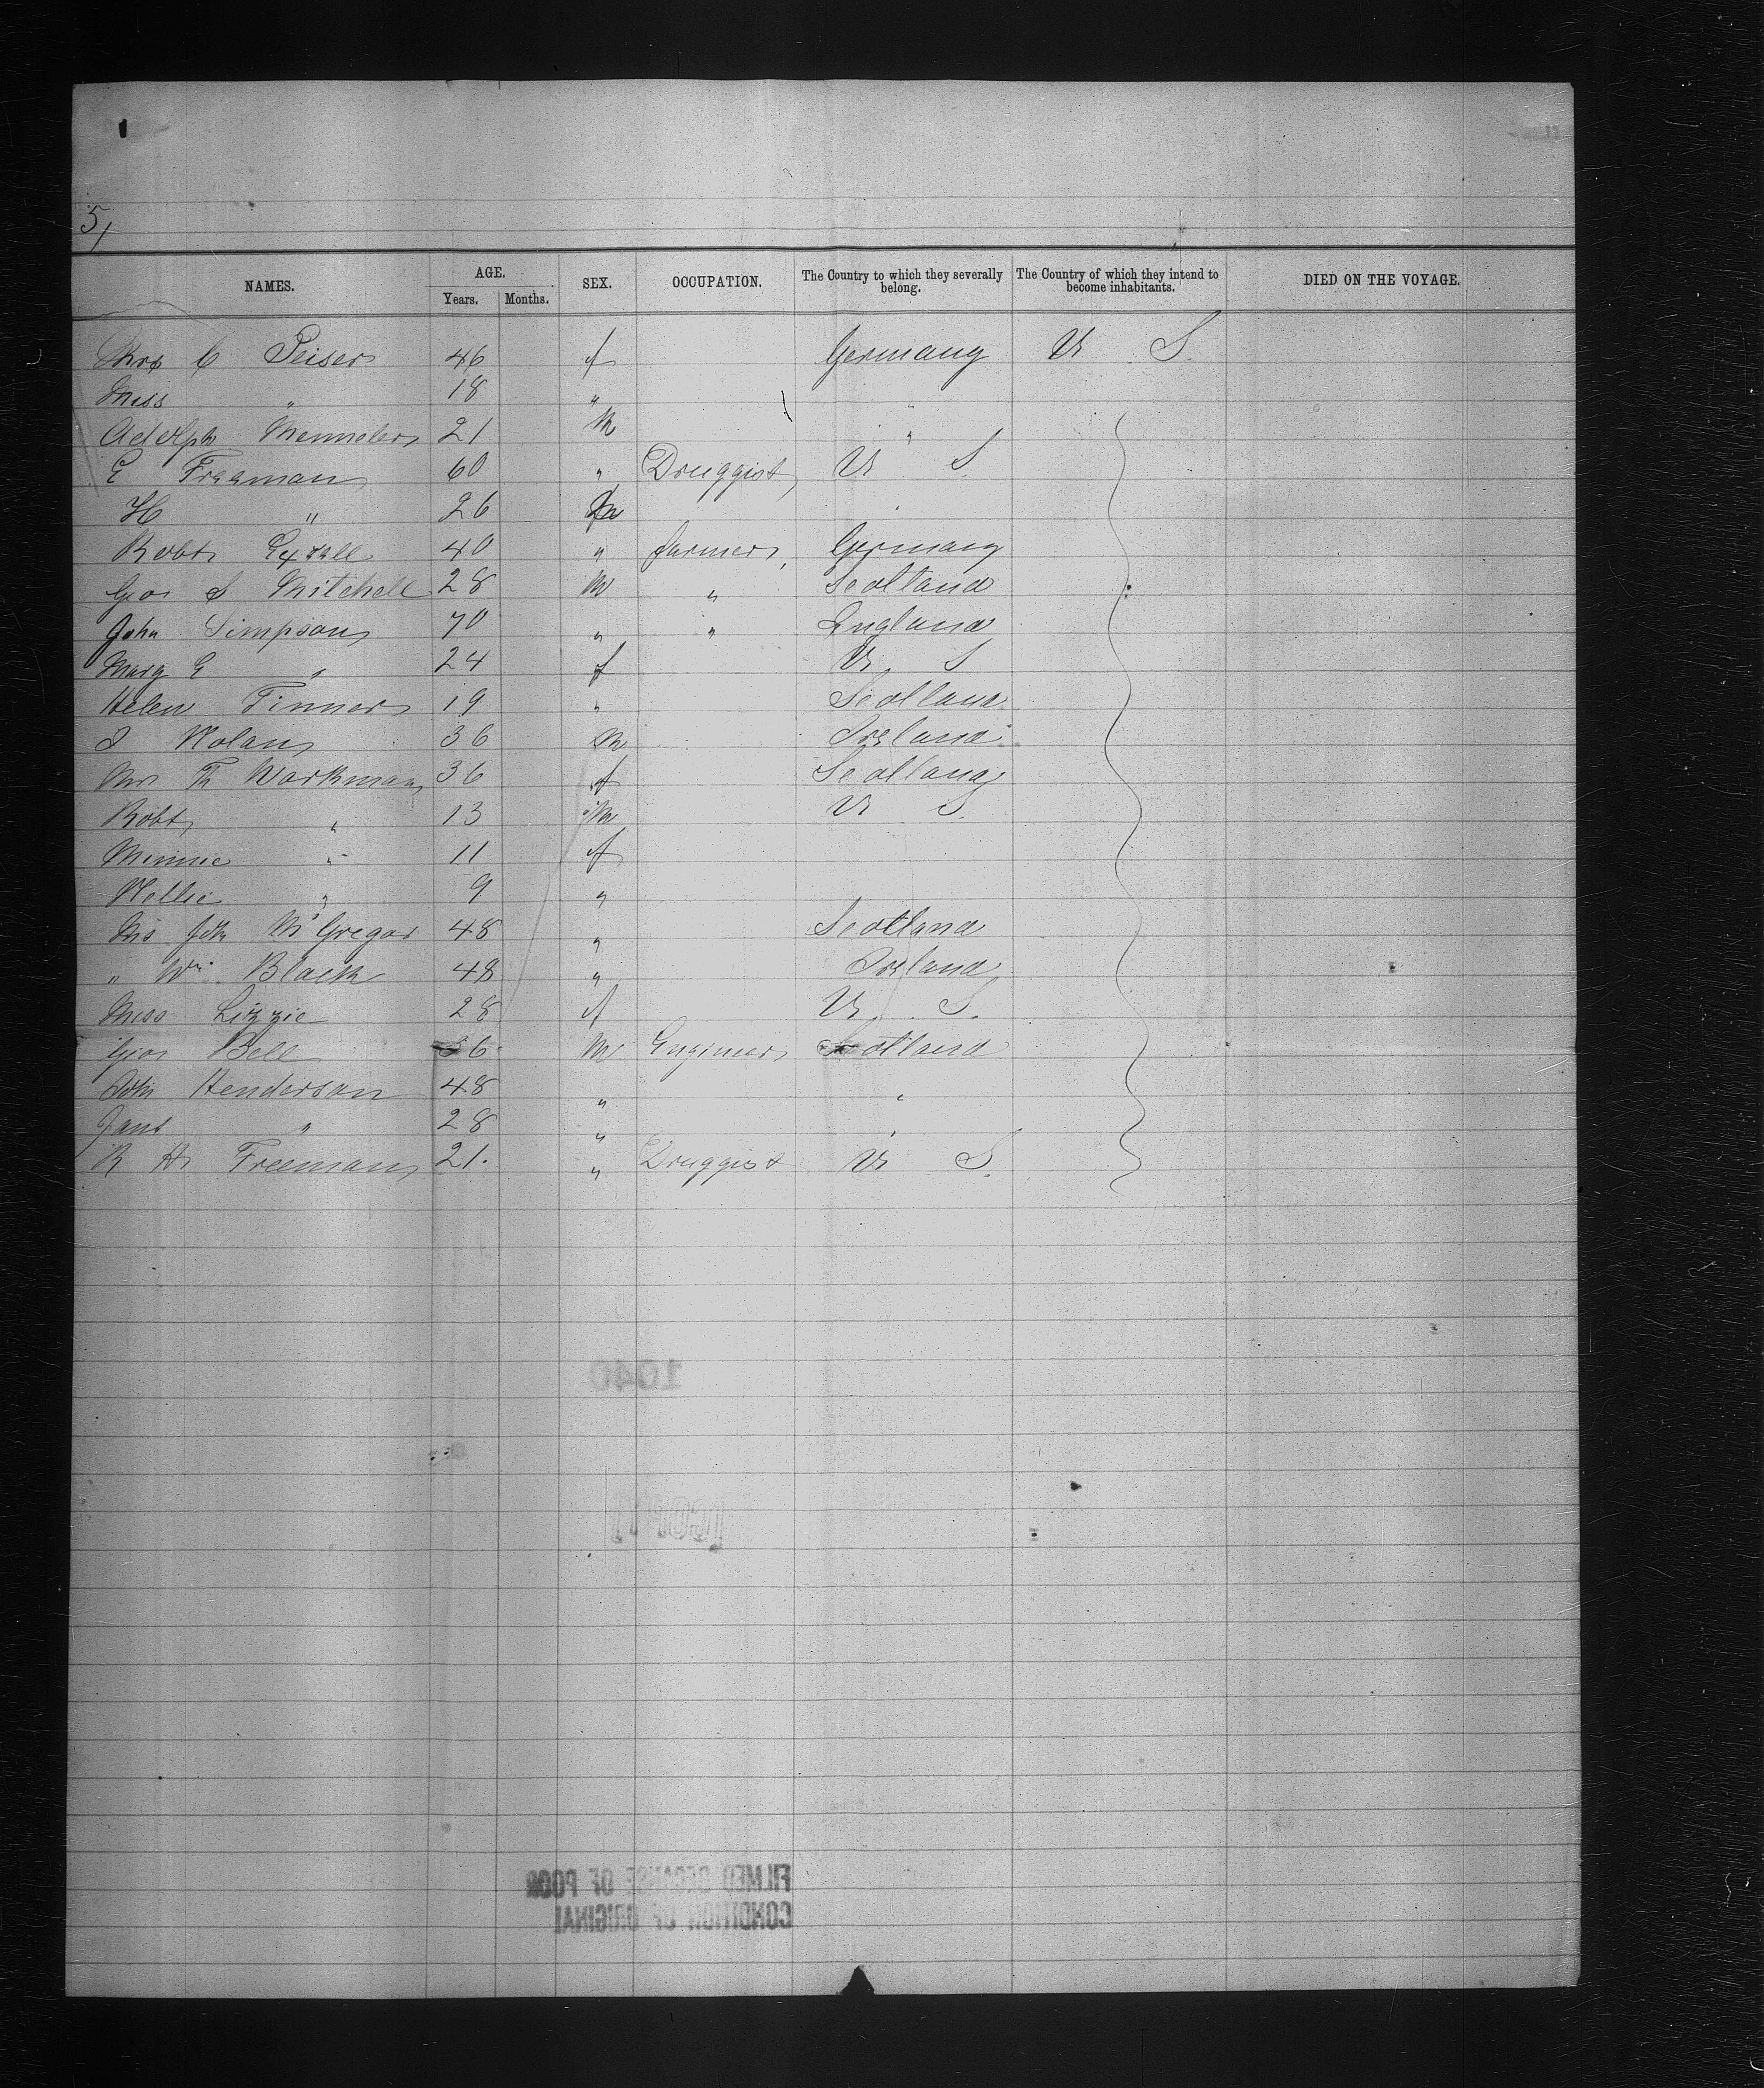 5,
NAMES. AGE. Years. Months. SEX. OCCUPATION. The Country to which they severally belong. The Country of which they intend to become inhabitants. DIED ON THE VOYAGE.
Mrs C Peiser 46 f Germany U S
Miss " 18 " "
Adolph 21 M "
E Freeman 60 " Druggist U S
H " 26
Robt 40 " farmer Germany
Geo S Mitchell 28 M " Scotland
John Simpson 70 " " England
Marg E " 24 f U S
Helen Tinner 19 " Scotland
J Nolan 36 M Ireland
Mrs Th Workman 36 f Scotland
Robt " 13 M U S.
Minnie " 11 f
Nellie " 9 "
Mrs Jdn McGregor 48 " Scotland
" Wm. Black 48 " Ireland
Miss Lizzie 28 f U. S.
Geo Bell 36 M Engineer Scotland
Jdn Henderson 48 " "
Jane " 28 " "
R H Freeman 21. " Druggist U S.
1040
[COPY]
FILMED BECAUSE OF POOR
CONDITION OF ORIGINAL